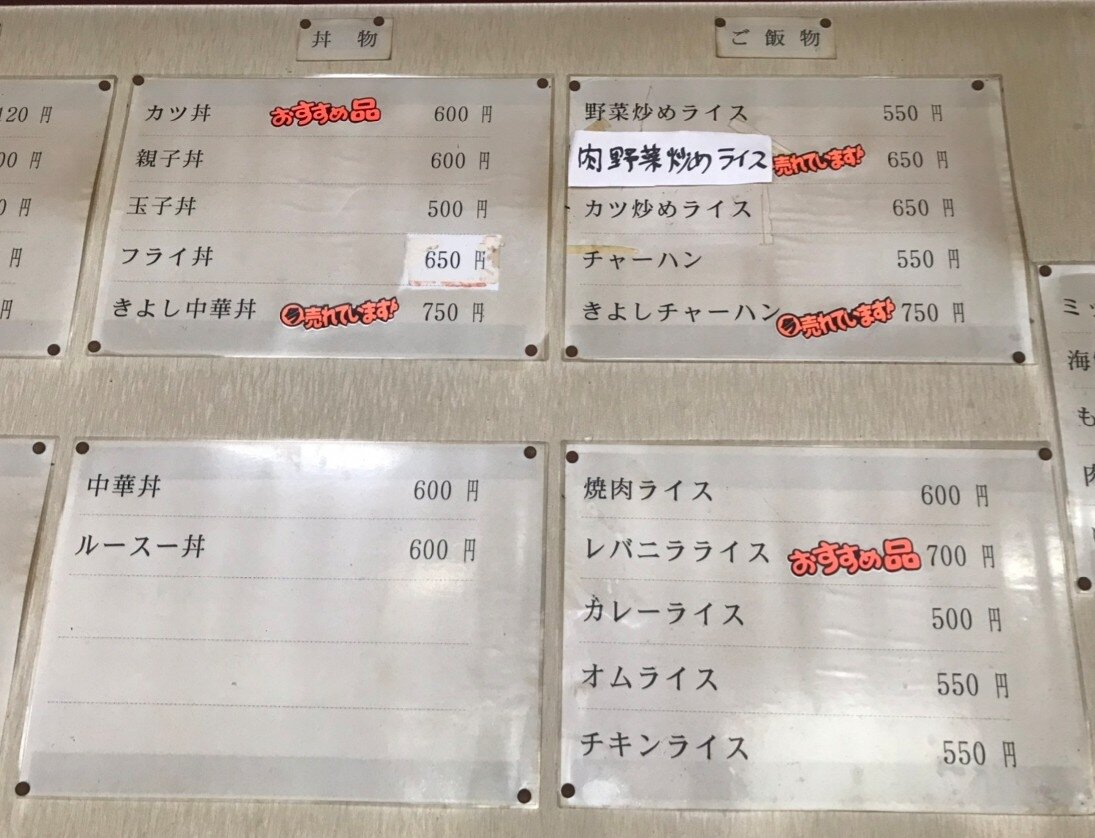 丼 物
カツ丼 おすすめ品 600 円
親子丼 600 円
玉子丼 500 円
フライ丼 650 円
きよし中華丼 売れています! 750 円
中華丼 600 円
ルースー丼 600 円
ご 飯 物
野菜炒めライス 550 円
肉野菜炒めライス 売れています! 650 円
カツ炒めライス 650 円
チャーハン 550 円
きよしチャーハン 売れています! 750 円
焼肉ライス 600 円
レバニラライス おすすめ品 700 円
カレーライス 500 円
オムライス 550 円
チキンライス 550 円
120 円
00 円
0 円
円
円
ミッ
海
も
肉